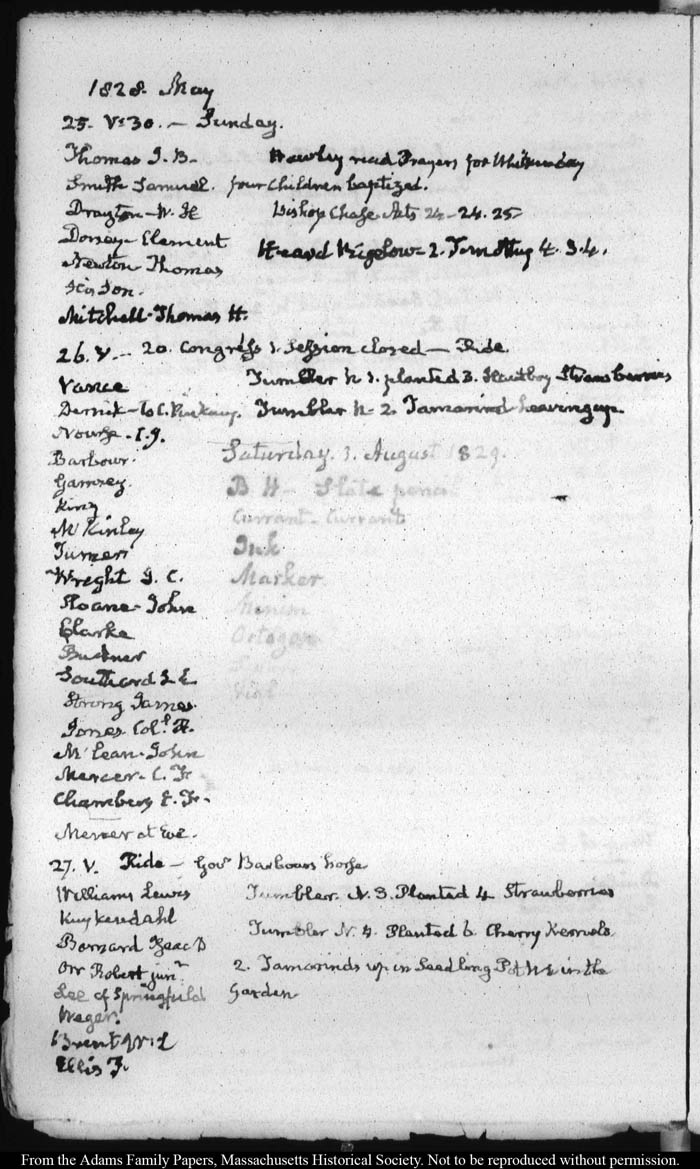 1828. May
25. V:30. — Sunday.
Thomas J. B— Hawley read Prayers for Whitsunday
Smith Samuel. four Children baptized.
Drayton—W. Bishop Chase Acts 24—24.25
Dorsey—Clement Heard Bigelow—2. Timothy 4. 3.4.
Newton Thomas
his Son.
Mitchell—Thomas R.
26. V.— 20. Congress 1. Session closed — Ride.
Vance Tumbler N 1. planted 3. Hautboy Strawberries
Tumbler N—2. Tamarind
Nourse.
Barbour. Saturday. 1. August 1829.
Gamsey. B H— Slate pencil
King Currant—Currant
McKinley Ink
Turner Marker
Wright J. C. Minim
Sloane—John Octagon
Clarke
Buckner Vial
Southard S L
Strong James
Jones Col. R.
McLean—John
Mercer—C. F.
Chambers E. F.
Mercer at Eve.
27. V. Ride — Govr Barbours horse
Williams Lewis Tumbler. N. 3. Planted 4 Strawberries
Kuykendahl Tumbler N. 4. Planted 6 Cherry Kernels
Barnard Isaac D 2. Tamarinds up in Seedling Pot in the
Orr Robert junr Garden
Lee of Springfield
Wager.
Brent W. L
Ellis F.
From the Adams Family Papers, Massachusetts Historical Society. Not to be reproduced without permission.